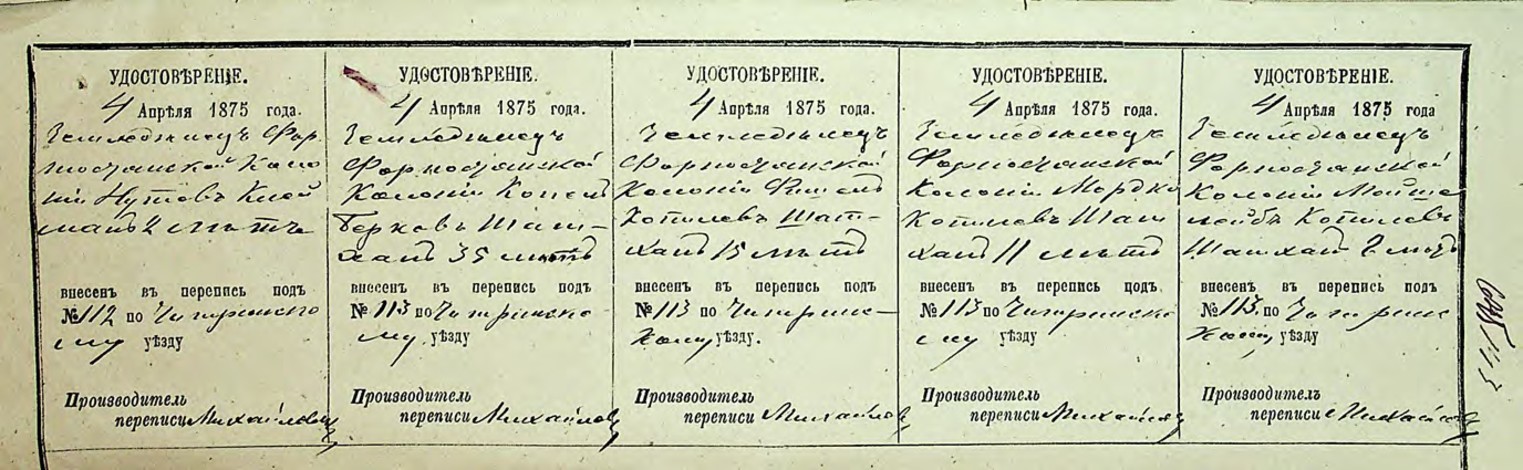 УДОСТОВѢРЕНІЕ.
4 Апрѣля 1875 года.
Земледѣлецъ Фор-
постянской Коло
ніи
лѣтъ
внесенъ въ перепись подъ
№ 112 по Чигиринско
му уѣзду
Производитель
переписи Михайловъ
УДОСТОВѢРЕНІЕ.
4 Апрѣля 1875 года.
Земледѣлецъ
Форпостянской
Колоніи Копель
Берковъ Шат-
ханъ 35 лѣтъ
внесенъ въ перепись подъ
№ 113 по Чигиринско
му уѣзду
Производитель
переписи Михайловъ
УДОСТОВѢРЕНІЕ.
4 Апрѣля 1875 года.
Земледѣлецъ
Форпостянской
Колоніи Фишель
Копилевъ Шат-
ханъ 15 лѣтъ
внесенъ въ перепись подъ
№ 113 по Чигирин-
кому уѣзду.
Производитель
переписи Михайловъ
УДОСТОВѢРЕНІЕ.
4 Апрѣля 1875 года.
Земледѣлецъ
Форпостянской
Колоніи Мордко
Копилевъ Шат
ханъ 11 лѣтъ
внесенъ въ перепись подъ
№ 113 по Чигиринско
му уѣзду
Производитель
переписи Михайловъ
УДОСТОВѢРЕНІЕ.
4 Апрѣля 1875 года
Земледѣлецъ
Форпостянской
Колоніи Мойше
лейбъ Копилевъ
Шатханъ
внесенъ въ перепись подъ
№ 113. по Чигирин
кому уѣзду
Производитель
переписи Михайловъ